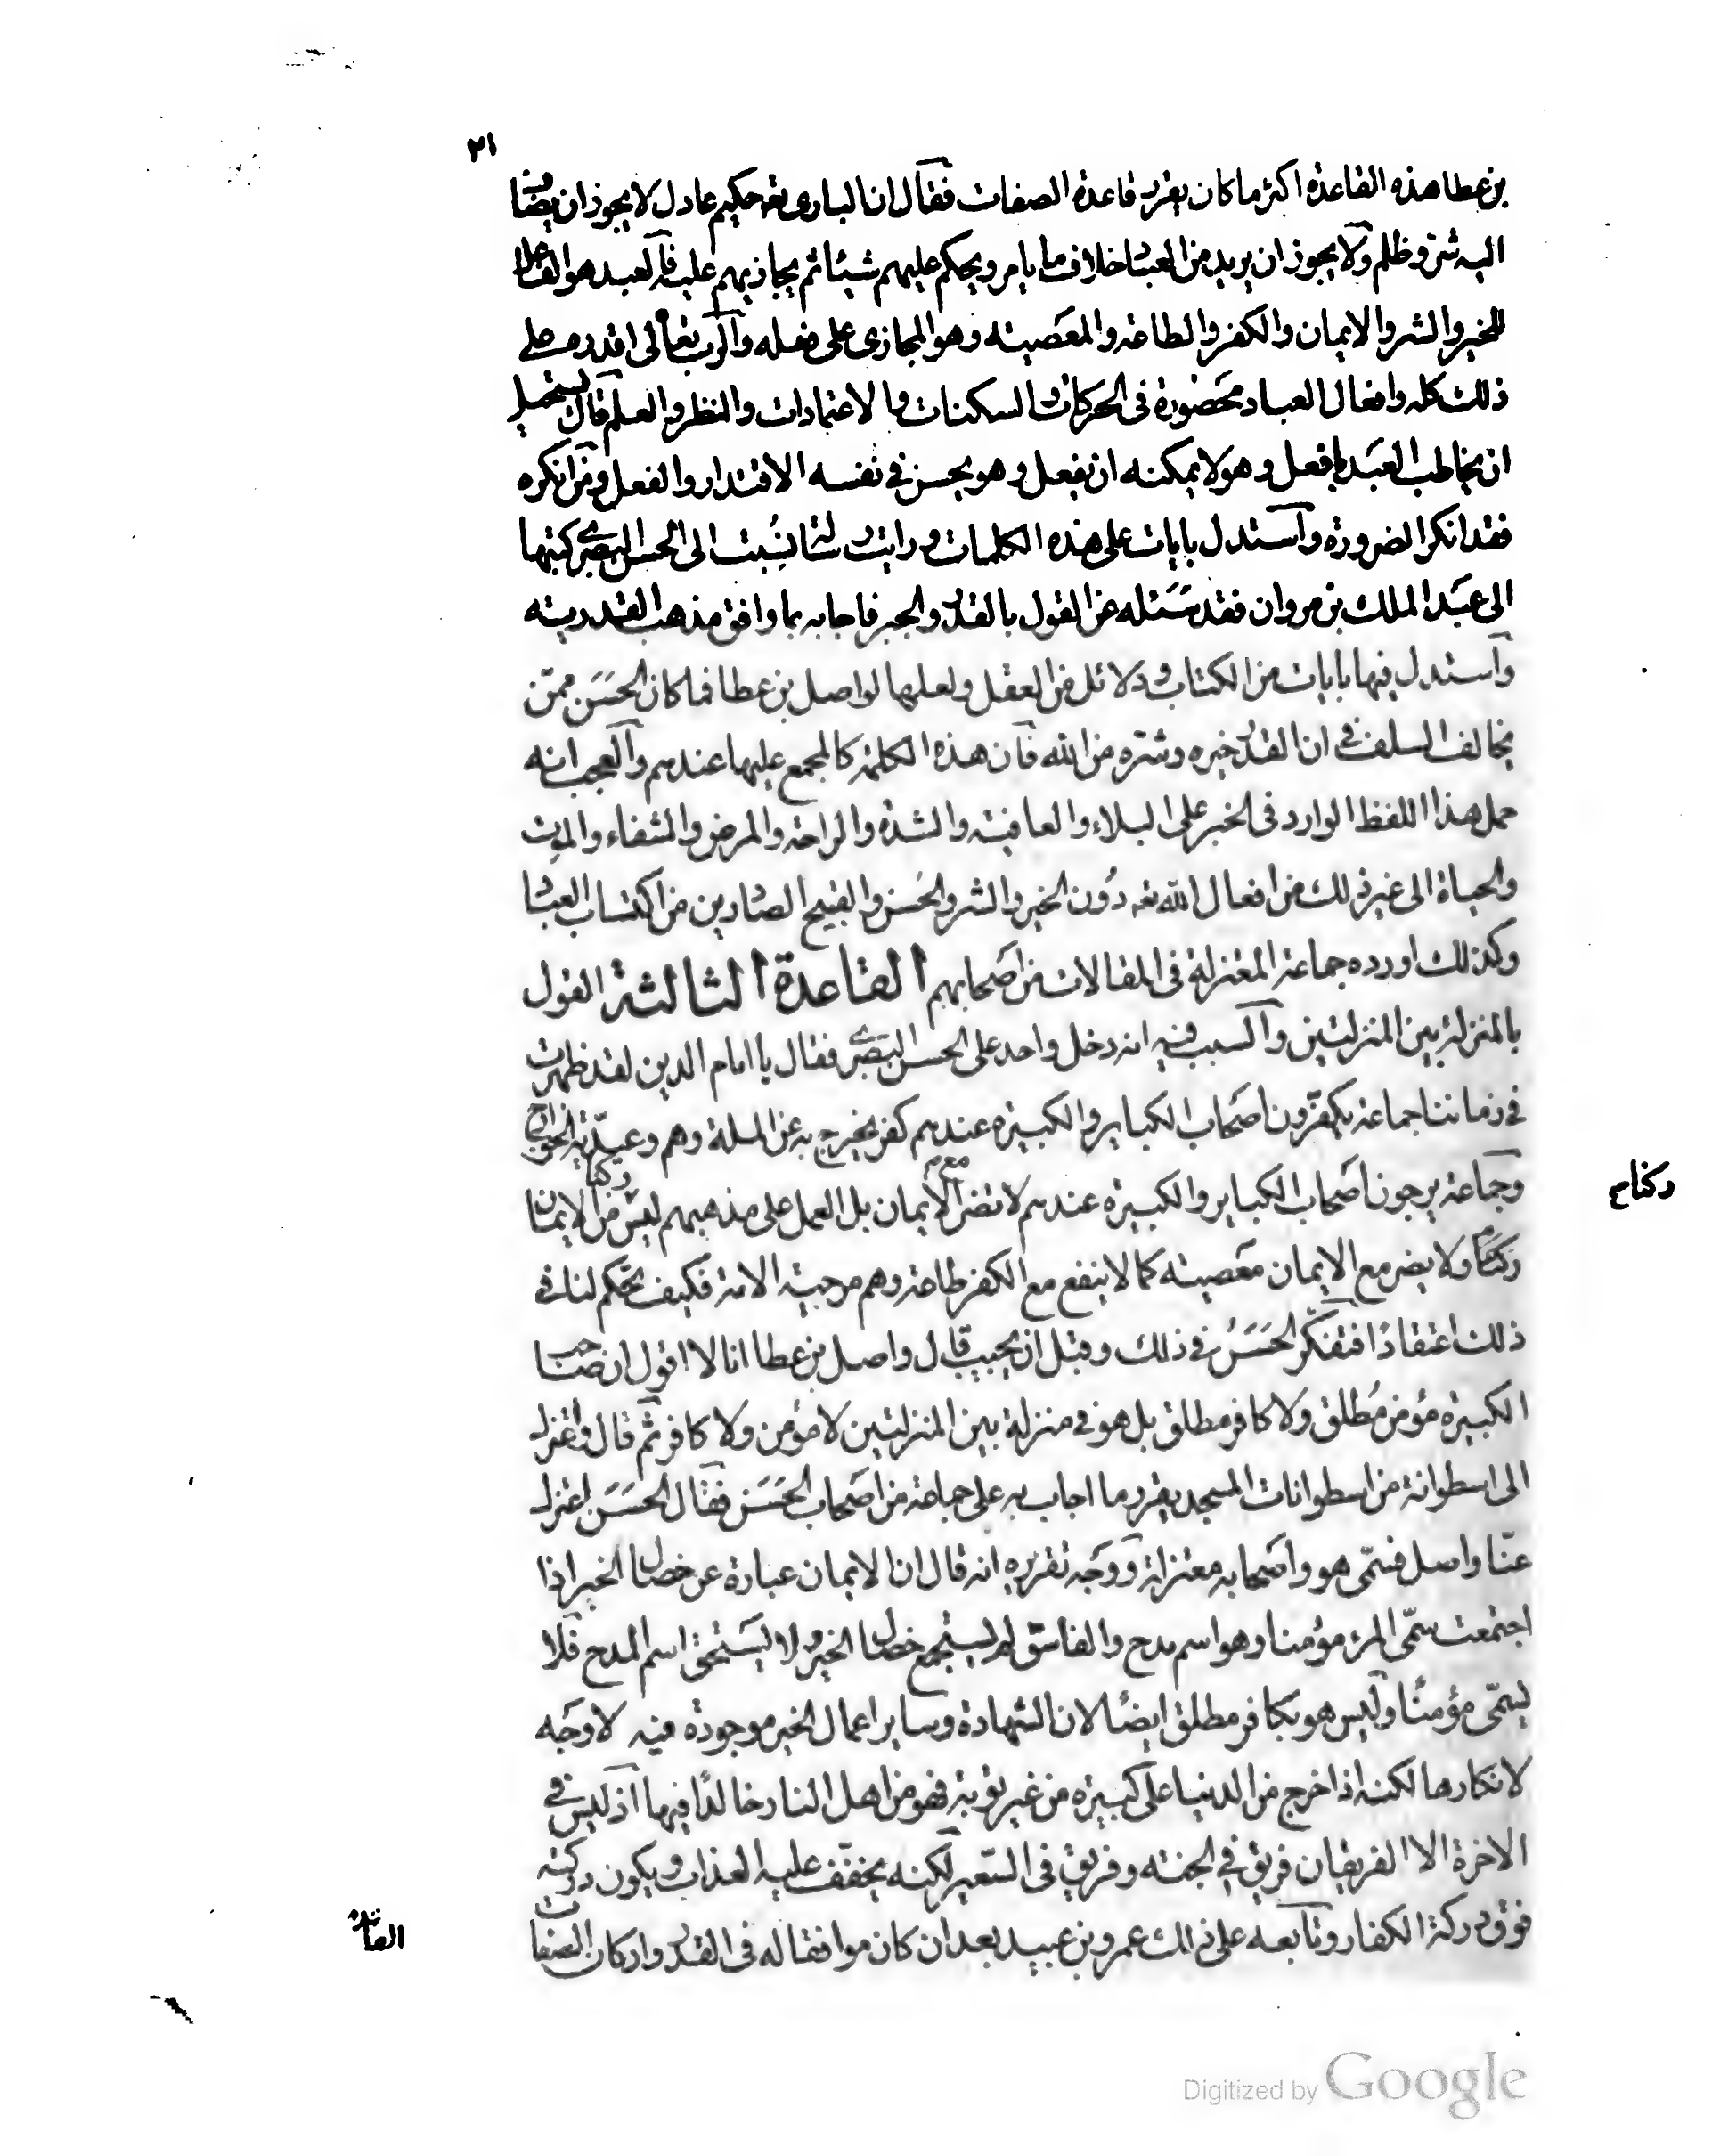 ٢١
بن عطا هذه القاعدة اكثر ما كان يقرر قاعدة الصفات فقال ان البارى تعه حكيم عادل لا يجوز ان يضاف
اليه شر وظلم ولا يجوز ان يريد من العباد خلاف ما يامر ويحكم عليهم شيئا ثم يجازيهم عليه فالعبد هو الفاعل
للخير والشر والايمان والكفر والطاعة والمعصية وهو المجازى على فعله والرب تعالى اقدره على
ذلك كله وافعال العباد محصورة فى الحركات والسكنات والاعتمادات والنظر والعلم قال يستحيل
ان يخاطب العبد بافعل وهو لا يمكنه ان يفعل وهو يحس فى نفسه الاقتدار والفعل ومن انكره
فقد انكر الضرورة واستدل بايات على هذه الكلمات ورايت رسالة نسبت الى الحسن البصرى كتبها
الى عبد الملك بن مروان فقد سئله عن القول بالقدر والجبر فاجابه بما وافق مذهب القدرية
واستدل فيها بايات من الكتاب ودلائل من العقل ولعلها لواصل بن عطا فما كان الحسن ممّن
يخالف السلف فى ان القدر خيره وشره من الله فان هذه الكلمة كالمجمع عليها عندهم والعجب انه
حمل هذا اللفظ الوارد فى الخبر على البلاء والعافية والشدة والراحة والمرض والشفاء والموت
والحياة الى غير ذلك من افعال الله تعه دون الخير والشر والحسن والقبيح الصادرين من اكتساب العباد
وكذلك اورده جماعة المعتزلة فى المقالات من اصحابهم القاعدة الثالثة القول
بالمنزلة بين المنزلتين والسبب فيه انه دخل واحد على الحسن البصرى فقال يا امام الدين لقد ظهرت
فى زماننا جماعة يكفرون اصحاب الكباير والكبيرة عندهم كفر يخرج به عن الملة وهم وعيدية الخوارج
وجماعة يرجون اصحاب الكباير والكبيرة عندهم لا تضر مع الايمان بل العمل على مذهبهم ليس من الايمان
ركنا
ركنا
ركنا ولا يضر مع الايمان معصية كما لا ينفع مع الكفر طاعة وهم مرجية الامة فكيف تحكم لنا فى
ذلك اعتقادًا فتفكر الحسن فى ذلك وقبل ان يجيب قال واصل بن عطا انا لا اقول ان صاحب
الكبيرة مؤمن مطلق ولا كافر مطلق بل هو فى منزلة بين المنزلتين لا مؤمن ولا كافر ثم قال واعتزل
الى اسطوانة من اسطوانات المسجد يقرر ما اجاب به على جماعة من اصحاب الحسن فقال الحسن اعتزل
عنّا واصل فسمّى هو واصحابه معتزلة ووجه تقريره انه قال ان الايمان عبارة عن خصال الخير اذا
اجتمعت سمّى المرء مؤمنا وهو اسم مدح والفاسق لم يستجمع خصال الخير ولا يستحق اسم المدح فلا
يسمّى مؤمنًا وليس هو بكافر مطلق ايضًا لان الشهادة وساير اعمال الخير موجودة فيه لا وجه
لانكارها لكنه اذا خرج من الدنيا على كبيرة من غير توبة فهو من اهل النار خالدًا فيها اذ ليس فى
الاخرة الا الفريقان فريق فى الجنة وفريق فى السعير لكنه يخفف عليه العذاب ويكون دركته
فوق دركة الكفار وتابعه على ذلك عمرو بن عبيد بعد ان كان موافقا له فى القدر وانكار الصفات
القاعدة
Digitized by Google